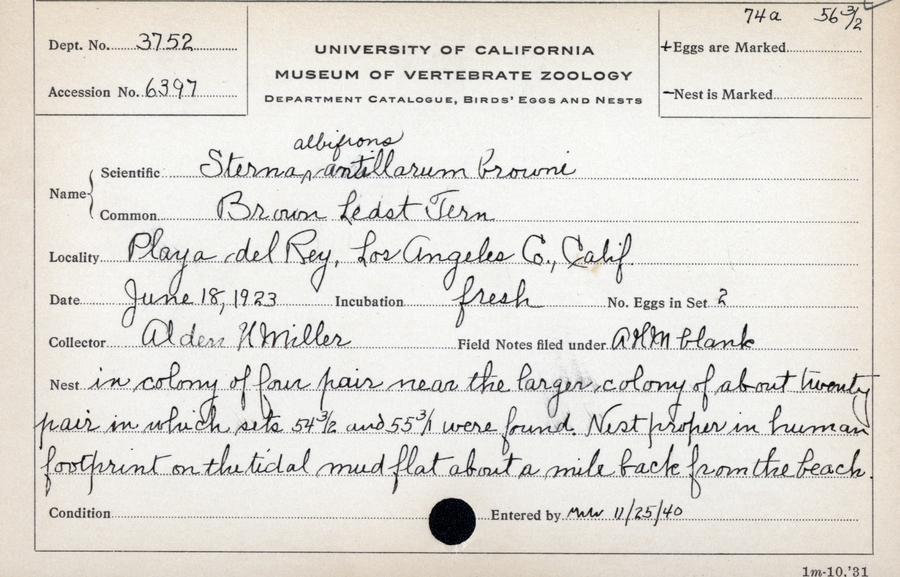 74a 56 3/2
Dept. No. 3752
UNIVERSITY OF CALIFORNIA
+Eggs are Marked
MUSEUM OF VERTEBRATE ZOOLOGY
Accession No. 6397
DEPARTMENT CATALOGUE, BIRDS' EGGS AND NESTS
—Nest is Marked
albifrons
Name { Scientific Sterna ^ antillarum browni
Common Brown Least Tern
Locality Playa del Rey, Los Angeles Co., Calif.
Date June 18, 1923 Incubation fresh No. Eggs in Set 2
Collector Alden H Miller Field Notes filed under AHM blank
Nest in colony of four pair near the larger colony of about twenty
pair in which sets 54 3/2 and 55 3/1 were found. Nest proper in human
footprint on the tidal mud flat about a mile back from the beach.
Condition Entered by 11/25/40
1m-10,'31